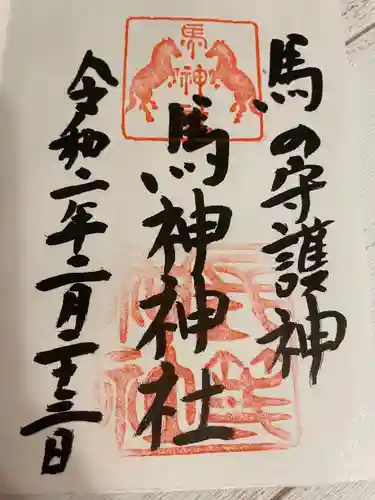 馬の守護神
馬神神社
令和二年十二月二十三日
馬神